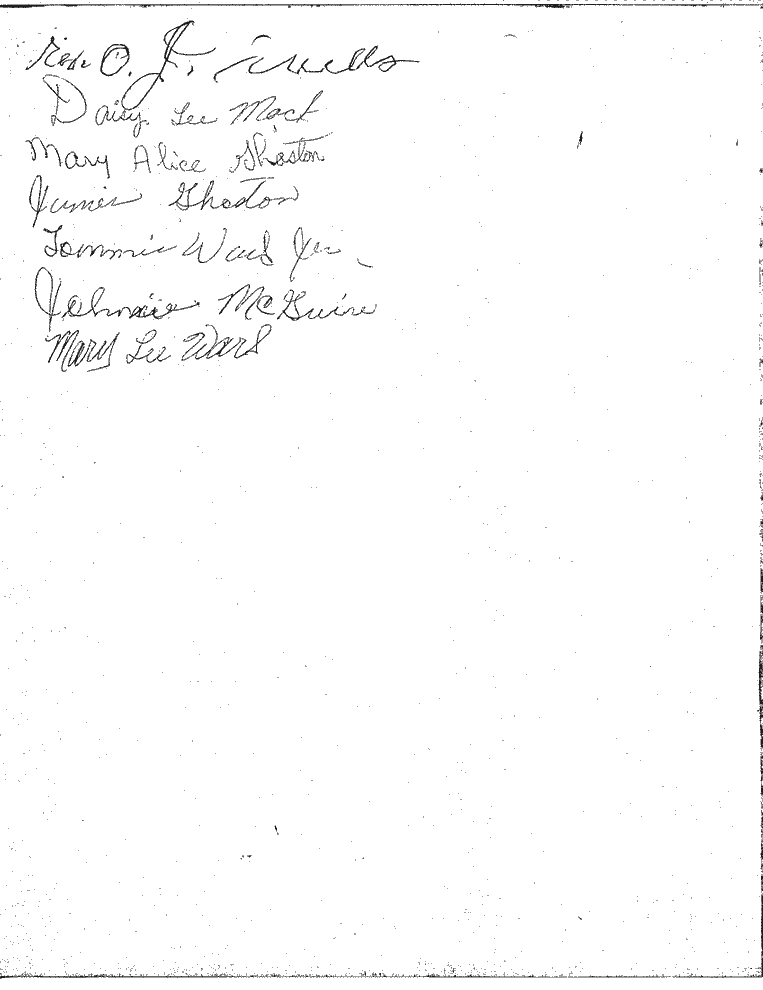 Rev. O. J.
Daisy Lee Mack
Mary Alice Ghoston
James Ghoston
Tommie Ward Jr.
Johnnie McGuire
Mary Lee Ward